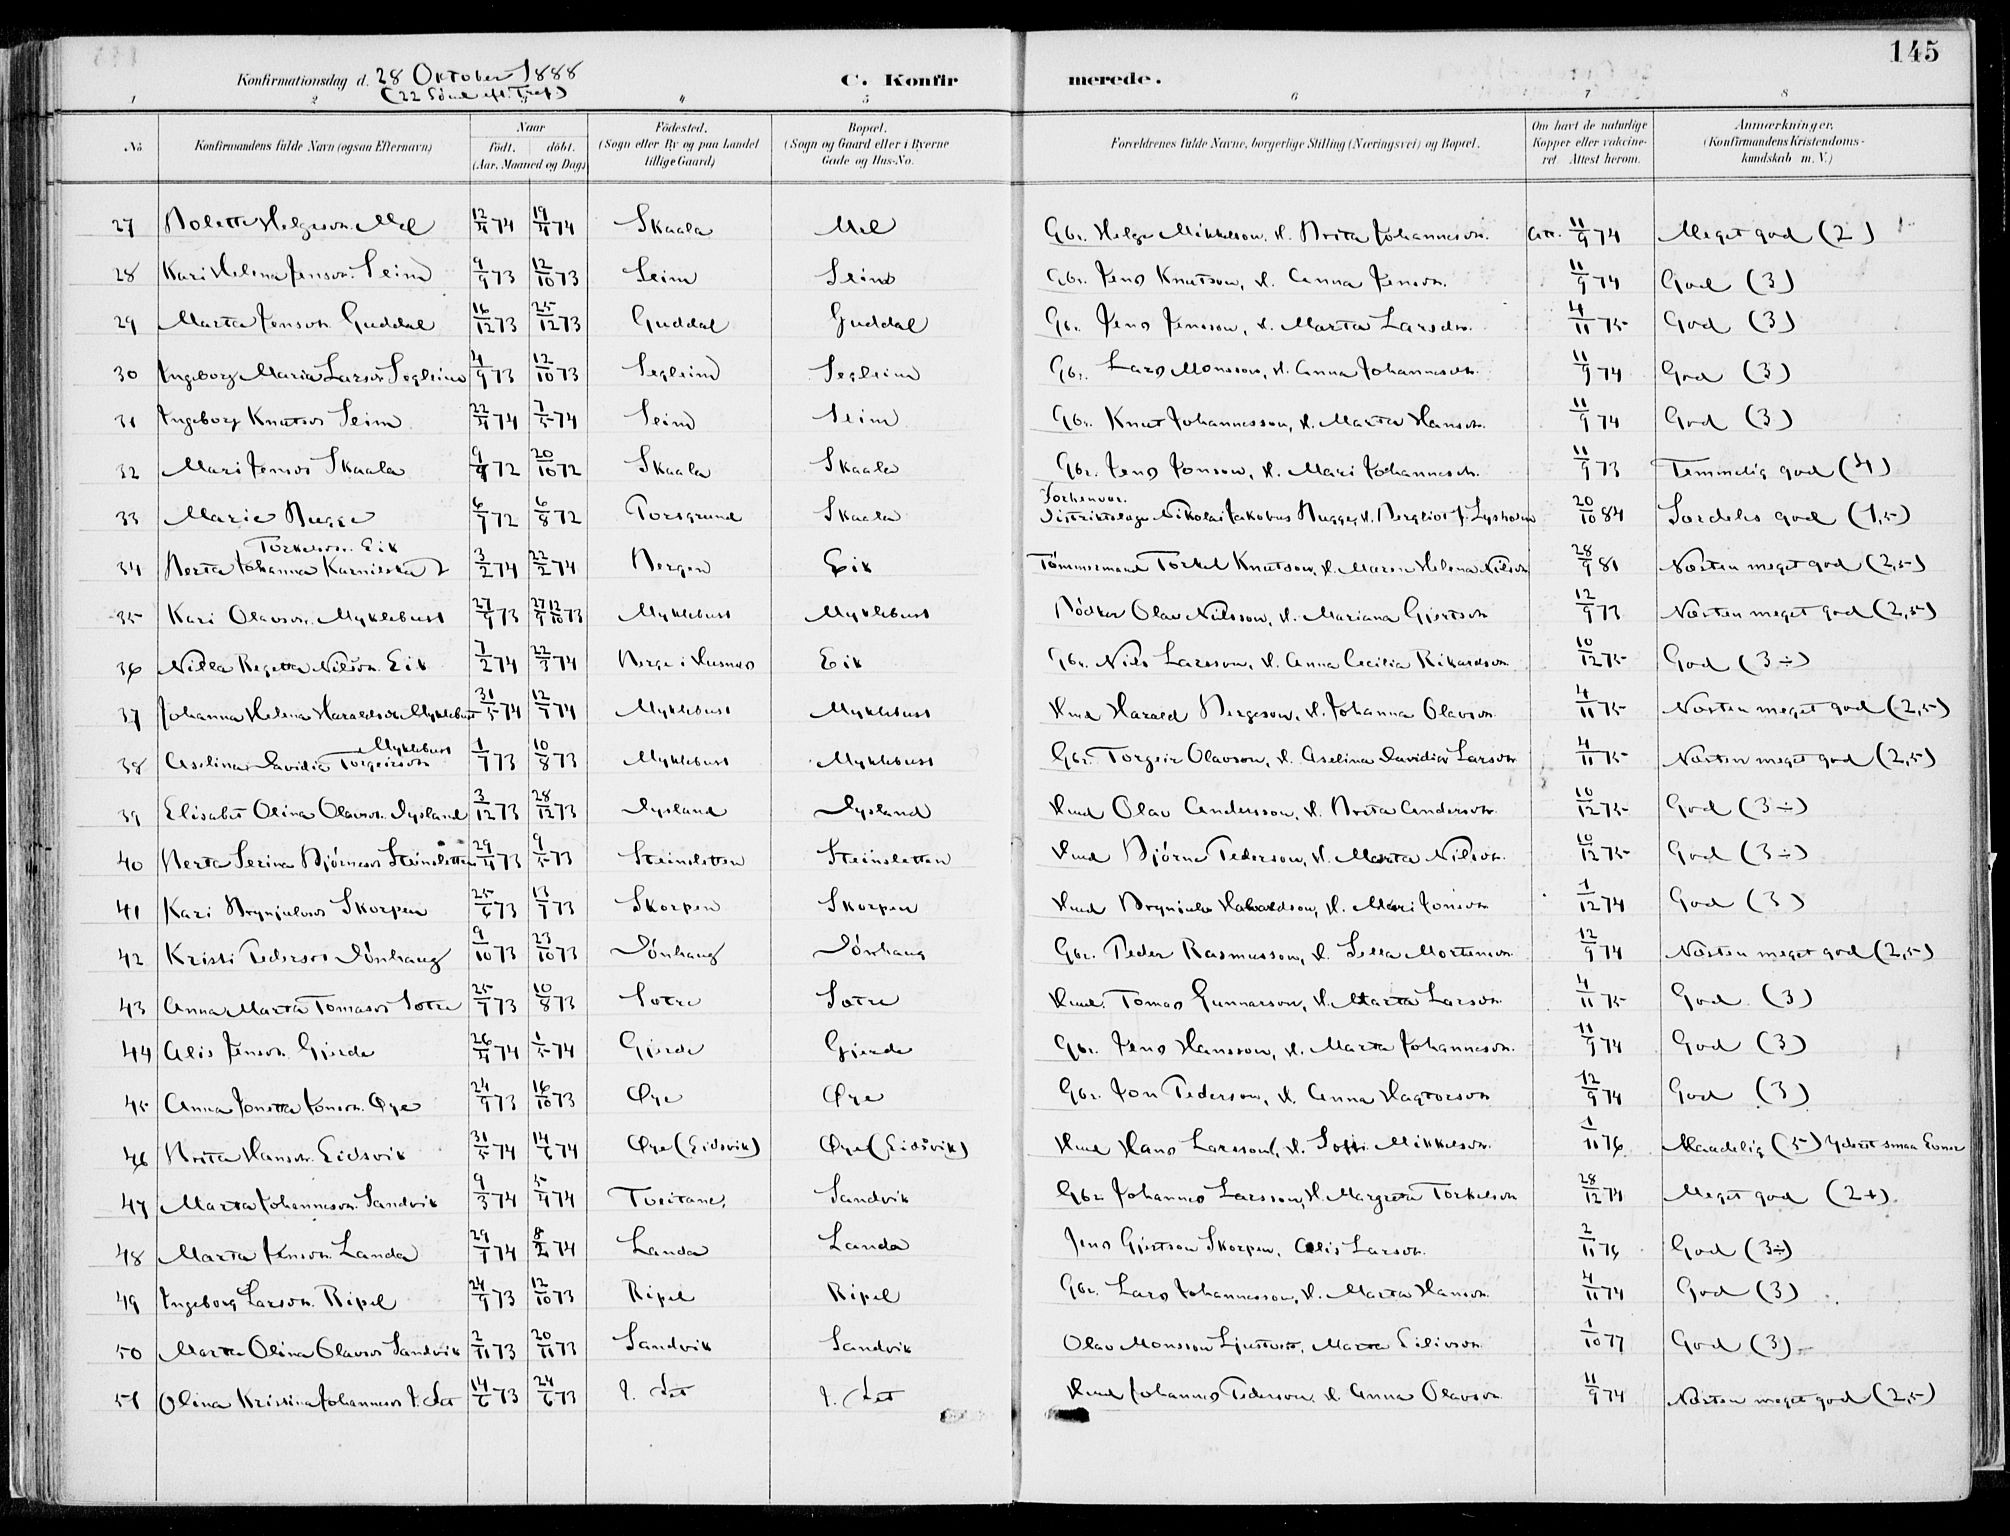 145
Konfirmationsdag d. 28 Oktober 1888 C. Konfirmerede.
(22 Sönd. eft. Tref.)
1 2 3 4 5 6 7 8
No Konfirmandens fulde Navn (ogsaa Efternavn) Naar födt. döbt. (Aar, Maaned og Dag) Födested. (Sogn eller By og paa Landet tillige Gaard) Bopæl. (Sogn og Gaard eller i Byerne Gade og Hus-No. Forældrenes fulde Navne, borgerlige Stilling (Næringsvei) og Bopæl. Om havt de naturlige Kopper eller vakcineret. Attest herom. Anmærkninger. (Konfirmandens Kristendomskundskab m. V.)
27 Bolette Helgesdr. Mel 12/4 74 19/4 74 Skaala Mel Gbr. Helge Mikkelson, H. Brita Johannesdr. Att. 11/9 74 Meget god (2)
28 Kari Helena Jensdr. Seim 9/9 73 12/10 73 Seim Seim Gbr. Jens Knutson, H. Anna Jensdr. 11/9 74 God (3)
29 Marta Jensdr. Guddal 16/12 73 25/12 73 Guddal Guddal Gbr. Jens Jensson, H. Marta Larsdr. 4/11 75 God (3)
30 Ingeborg Maria Larsdr Segleim 4/9 73 12/10 73 Segleim Segleim Gbr. Lars Monsson, H. Anna Johannesdr. 11/9 74 God (3)
31 Ingeborg Knutsdr Seim 22/4 74 7/5 74 Seim Seim Gbr. Knut Johannesson, H. Marta Hansdr. 11/9 74 God (3)
32 Mari Jensdr Skaala 9/9 72 20/10 72 Skaala Skaala Gbr. Jens Jonson, H. Mari Johannesdr. 11/9 73 Temmelig god (4)
33 Marie Bugge 6/7 72 6/8 72 Porsgrund Skaala Forhenvær. Distriktslæge Nikolai Jakobus Bugge, H. Bergliot J. Lysholm 20/10 84 Særdeles god (1,5)
34 Berta Johanna Karnilska Torkelsdr. Eik 3/2 74 22/2 74 Bergen Eik Tömmermand Torkel Knutson, H. Maren Helena Nilsdr 28/9 81 Næsten meget god (2,5)
35 Kari Olavsdr. Myklebust 27/9 73 27/9 12/10 73 Myklebust Myklebust Bödker Olav Nilsson, H. Mariana Gjertsdr 12/9 73 Næsten meget god (2,5)
36 Nilla Regetta Nilsdr. Eik 7/2 74 22/3 74 Berge i Husnes Eik Gbr. Nils Larsson, H. Anna Cecilia Rikardsdr. 10/12 75 God (3÷)
37 Johanna Helena Haraldsdr Myklebust 31/5 74 12/7 74 Myklebust Myklebust Hmd Harald Bergeson, H. Johanna Olavsdr. 4/11 75 Næsten meget god (2,5)
38 Aselina Davidia Torgeirsdr Myklebust 1/7 73 10/8 73 Myklebust Myklebust Gbr. Torgeir Olavson, H. Aselina Davidia Larsdr 4/11 75 Næsten meget god (2,5)
39 Elisabet Olina Olavsdr. Dysland 3/12 73 28/12 73 Dysland Dysland Hmd Olav Andersson, H. Brita Andersdr. 10/12 75 God (3÷)
40 Berta Serina Björnesdr Steinsletten 29/4 73 9/5 73 Steinsletten Steinsletten Hmd Björne Pederson, H. Marta Nilsdr. 10/12 75 God (3÷)
41 Kari Brynjulvsdr Skorpen 25/6 73 13/7 73 Skorpen Skorpen Hmd Brynjulv Halvaldson, H. Mari Jonsdr 1/12 74 God (3)
42 Kristi Pedersdr Dönhaug 9/10 73 23/10 73 Dönhaug Dönhaug Gbr. Peder Rasmusson, H. Sella Mortensdr. 12/9 74 Næsten meget god (2,5)
43 Anna Marta Tomasdr Sotre 25/7 73 10/8 73 Sotre Sotre Hmd. Tomas Gunnarson, H. Marta Larsdr. 4/11 75 God (3)
44 Alis Jensdr. Gjerde 26/4 74 1/5 74 Gjerde Gjerde Gbr. Jens Hansson, H. Marta Johannesdr. 11/9 74 God (3)
45 Anna Jonetta Jonsdr. Øye 24/9 73 16/10 73 Øye Øye Gbr. Jon Pederson, H. Anna Hagtorsdr 12/9 74 God (3)
46 Brita Hansdr. Eidsvik 31/5 74 14/6 74 Øye (Eidsvik) Øye (Eidsvik) Hmd Hans Larsson, H. Soffi Mikkelsdr. 1/11 76 Maadelig (5) Yderst smaa Evner
47 Marta Johannesdr. Sandvik 9/3 74 5/4 74 Tveitane, Sandvik Gbr Johannes Larsson, H. Margreta Torkelsdr 28/12 74 Meget god (2+).
48 Marta Jensdr. Landa 29/1 74 8/2 74 Landa Landa Jens Gjertson Skorpen, Alis Larsdr. 2/11 76 God (3÷)
49 Ingeborg Larsdr. Ripel 24/9 73 12/10 73 Ripel Ripel Gbr. Lars Johannesson, H. Marta Hansdr. 4/11 74 God (3)
50 Marta Olina Olavsdr Sandvik 2/11 73 20/11 73 Sandvik Sandvik Olav Monsson, Marta Eilivsdr. 1/10 77 God (3)
51 Olina Kristina Johannesdr 14/6 73 24/6 73 Hmd Johannes Pederson, H. Anna Olavsdr. 11/9 74 Næsten meget god (2,5)